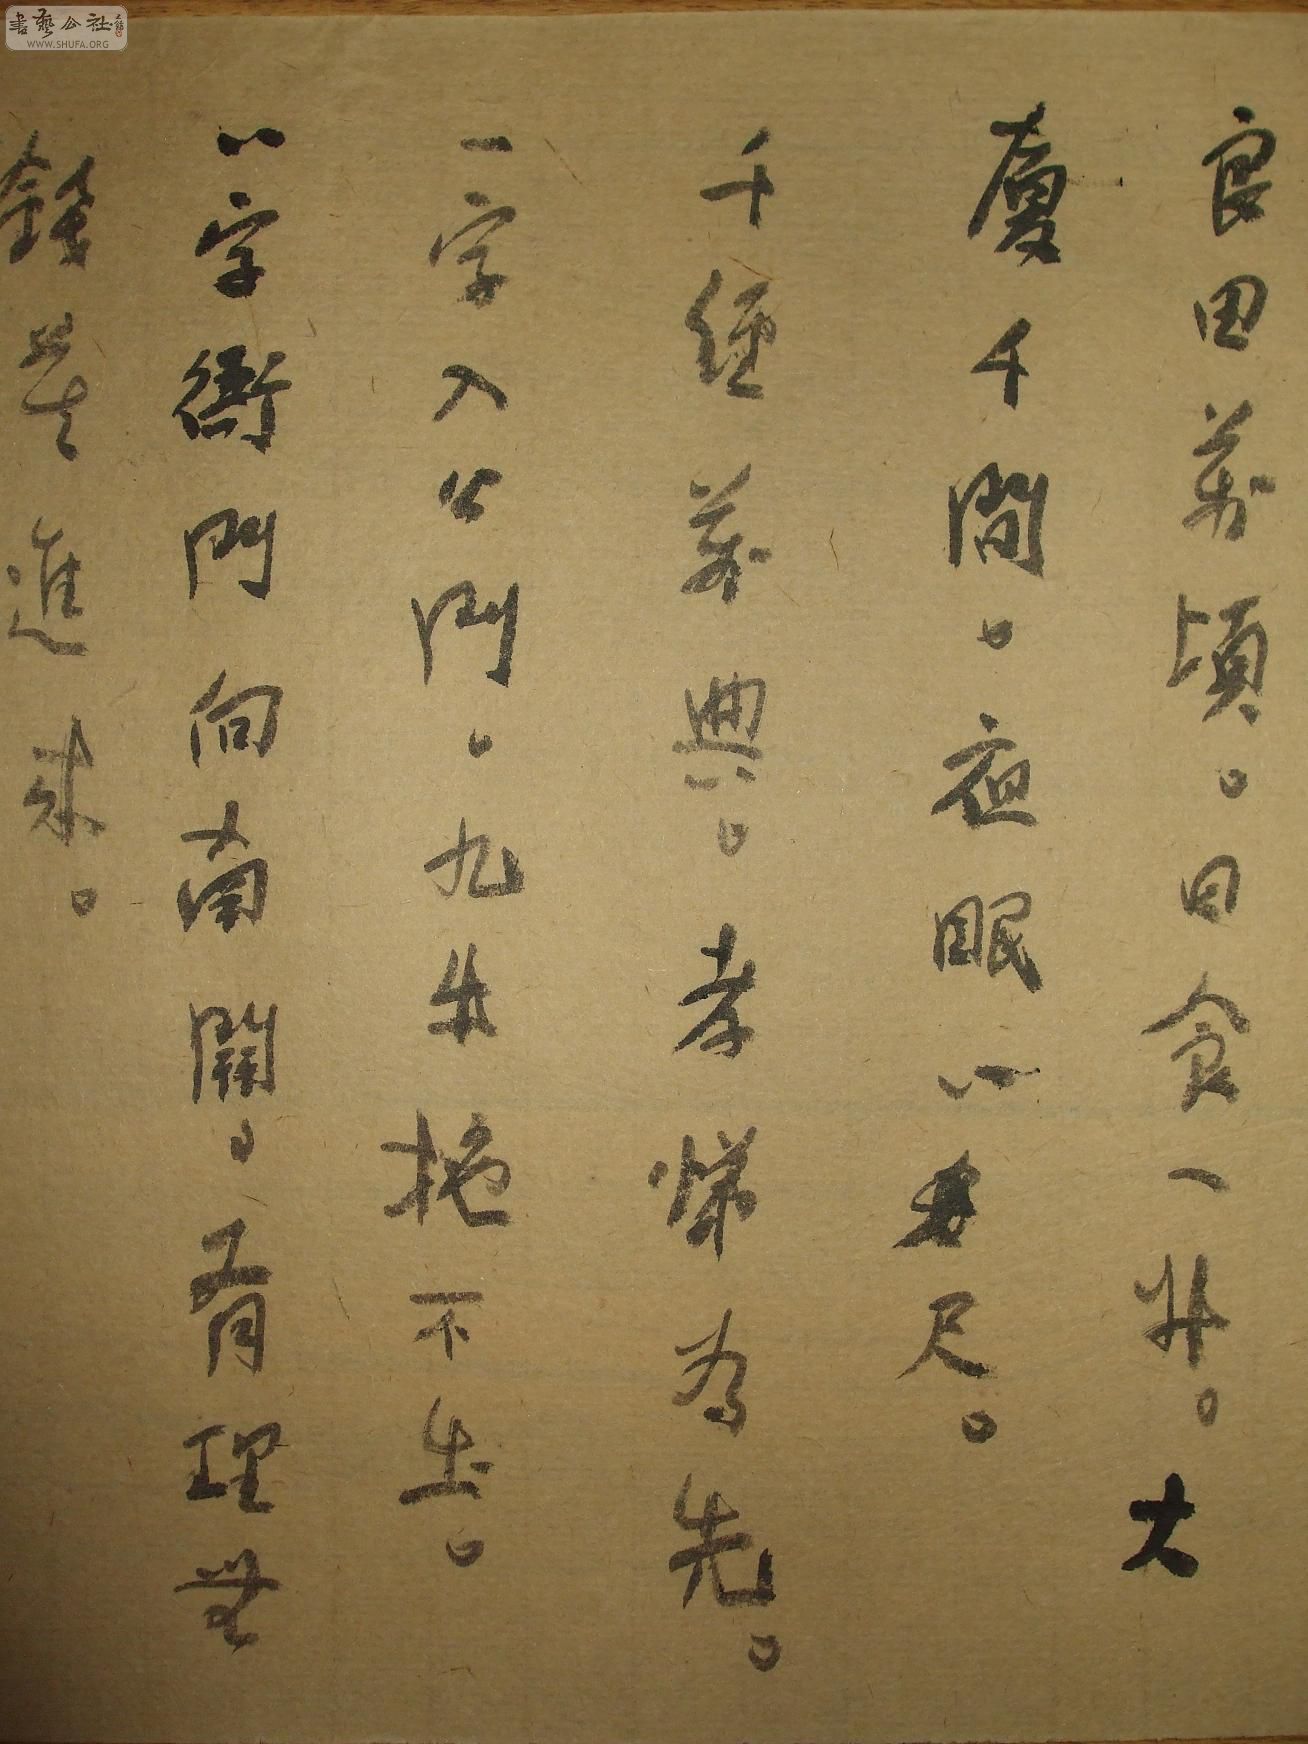 良田萬頃。日食一升。大
廈千間。夜眠八尺。
千經萬典。孝悌為先。
一字入公門。九牛拖不出。
八字衙門向南開。有理無
錢莫進來。
書藝公社
WWW.SHUFA.ORG